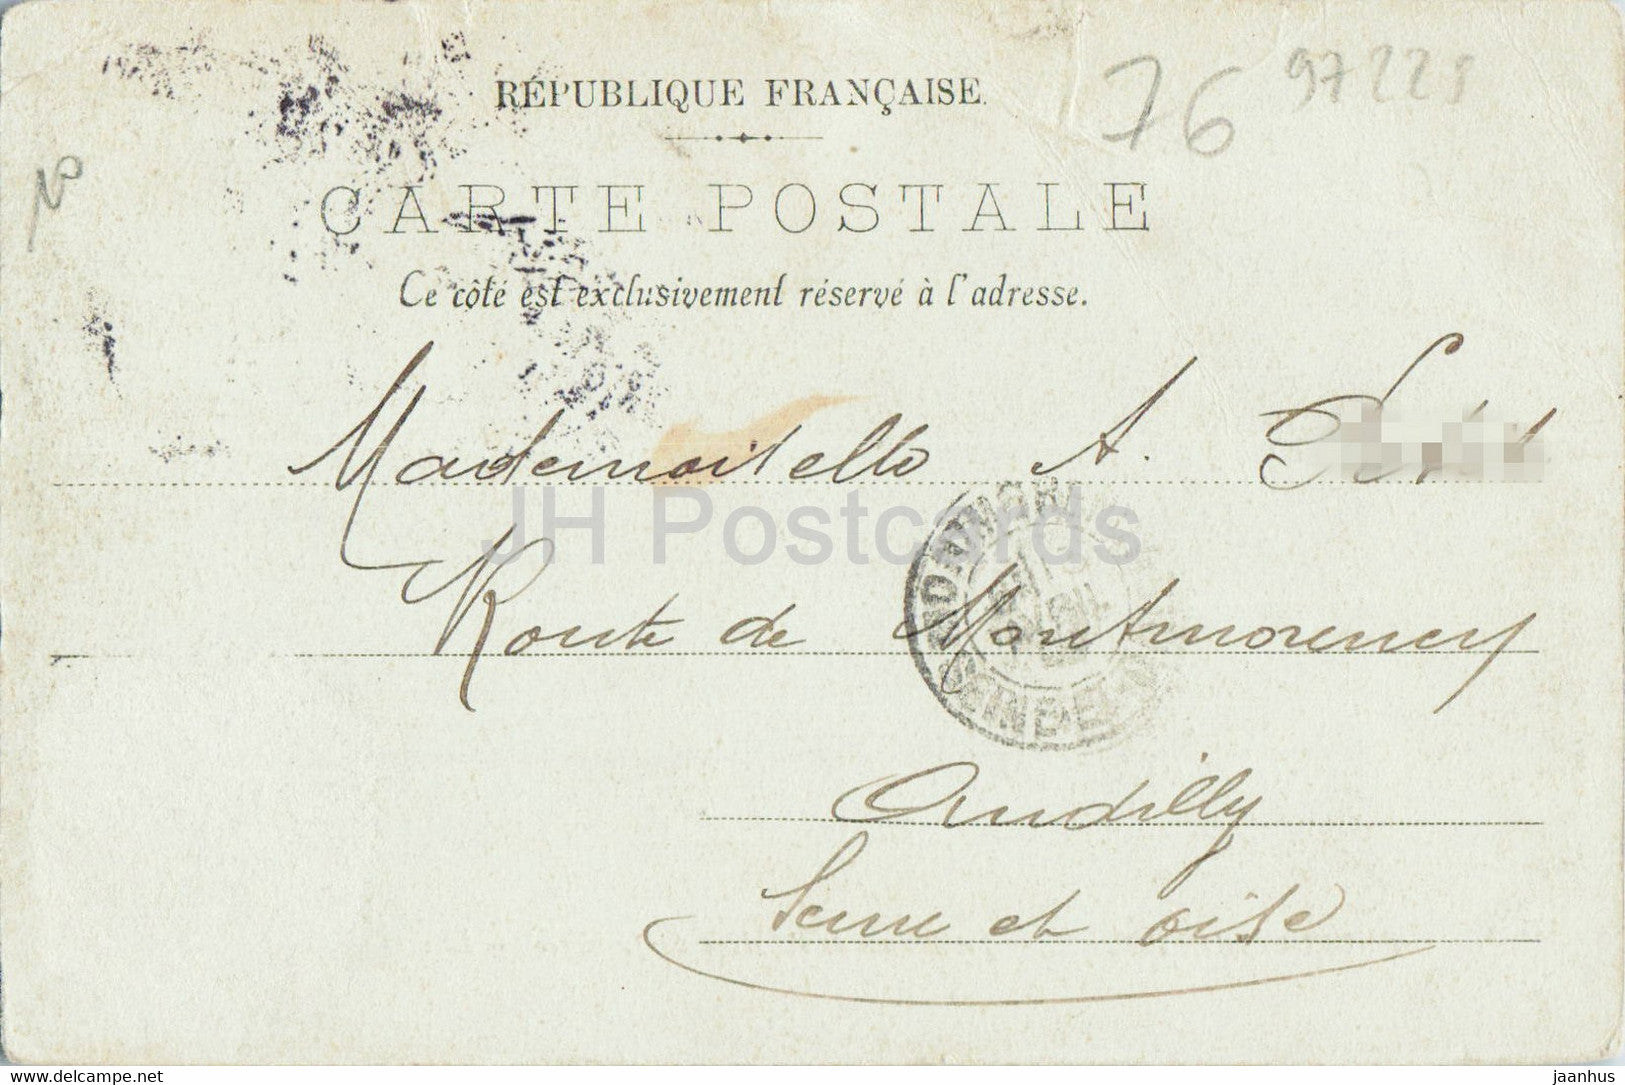 76 97225
RÉPUBLIQUE FRANÇAISE.
CARTE POSTALE
Ce côté est exclusivement réservé à l'adresse.
Mademoiselle A.
JH Postcards
Route de Montmorency
Andilly
Seine et Oise
www.delcampe.net
jaanhus